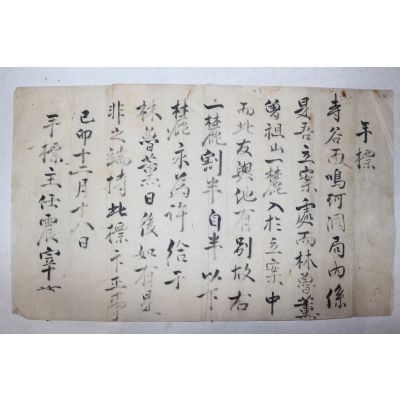 手標
寺谷面鳴河洞局內係
是吾立案處而林魯薰
曾祖山一麓入於立案中
而此友與他有別故右
一麓割半自半以下
麓永爲許給于
林魯薰日後如有是
非之端持此標卞正事
己卯十二月十八日
手標主任震宰